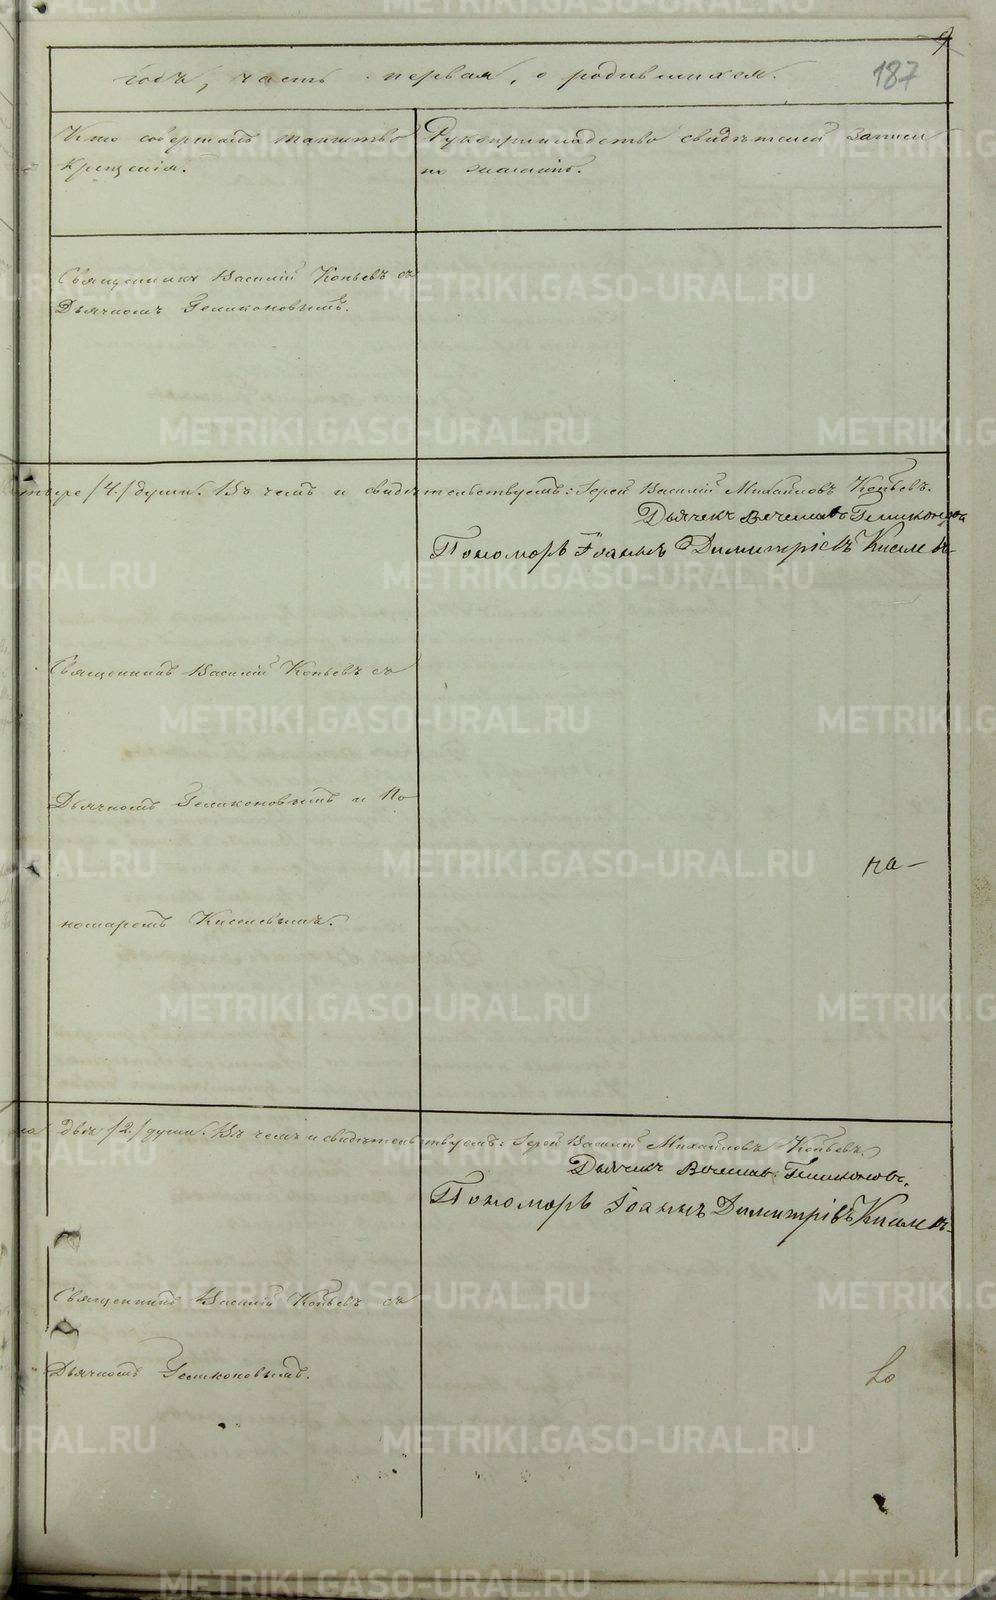 9
187
годъ, часть первая, о родившихся.
Кто совершалъ таинство
Крещенія.
Рукоприкладство свидѣтелей записи
по желанію.
Священникъ Василій Копьевъ съ
Дьячкомъ Геликоновымъ.
тыре /4/ души. Въ чемъ и свидѣтельствуемъ: Іерей Василій Михайловъ Копьевъ.
Дьячекъ Вечеслав Геликоновъ
Пономорь Іоаннъ Димитріевъ Киселевъ
Священникъ Василій Копьевъ съ
Дьячкомъ Геликоновымъ и По
номаремъ Киселевымъ.
на-
на двѣ /2/ души. Въ чемъ и свидѣтельствуемъ: Іерей Василій Михайловъ Копьевъ.
Дьячекъ Вечеслав Геликоновъ.
Пономорь Іоаннъ Димитріевъ Киселевъ
Священникъ Василій Копьевъ съ
Дьячкомъ Геликоновымъ.
METRIKI.GASO-URAL.RU